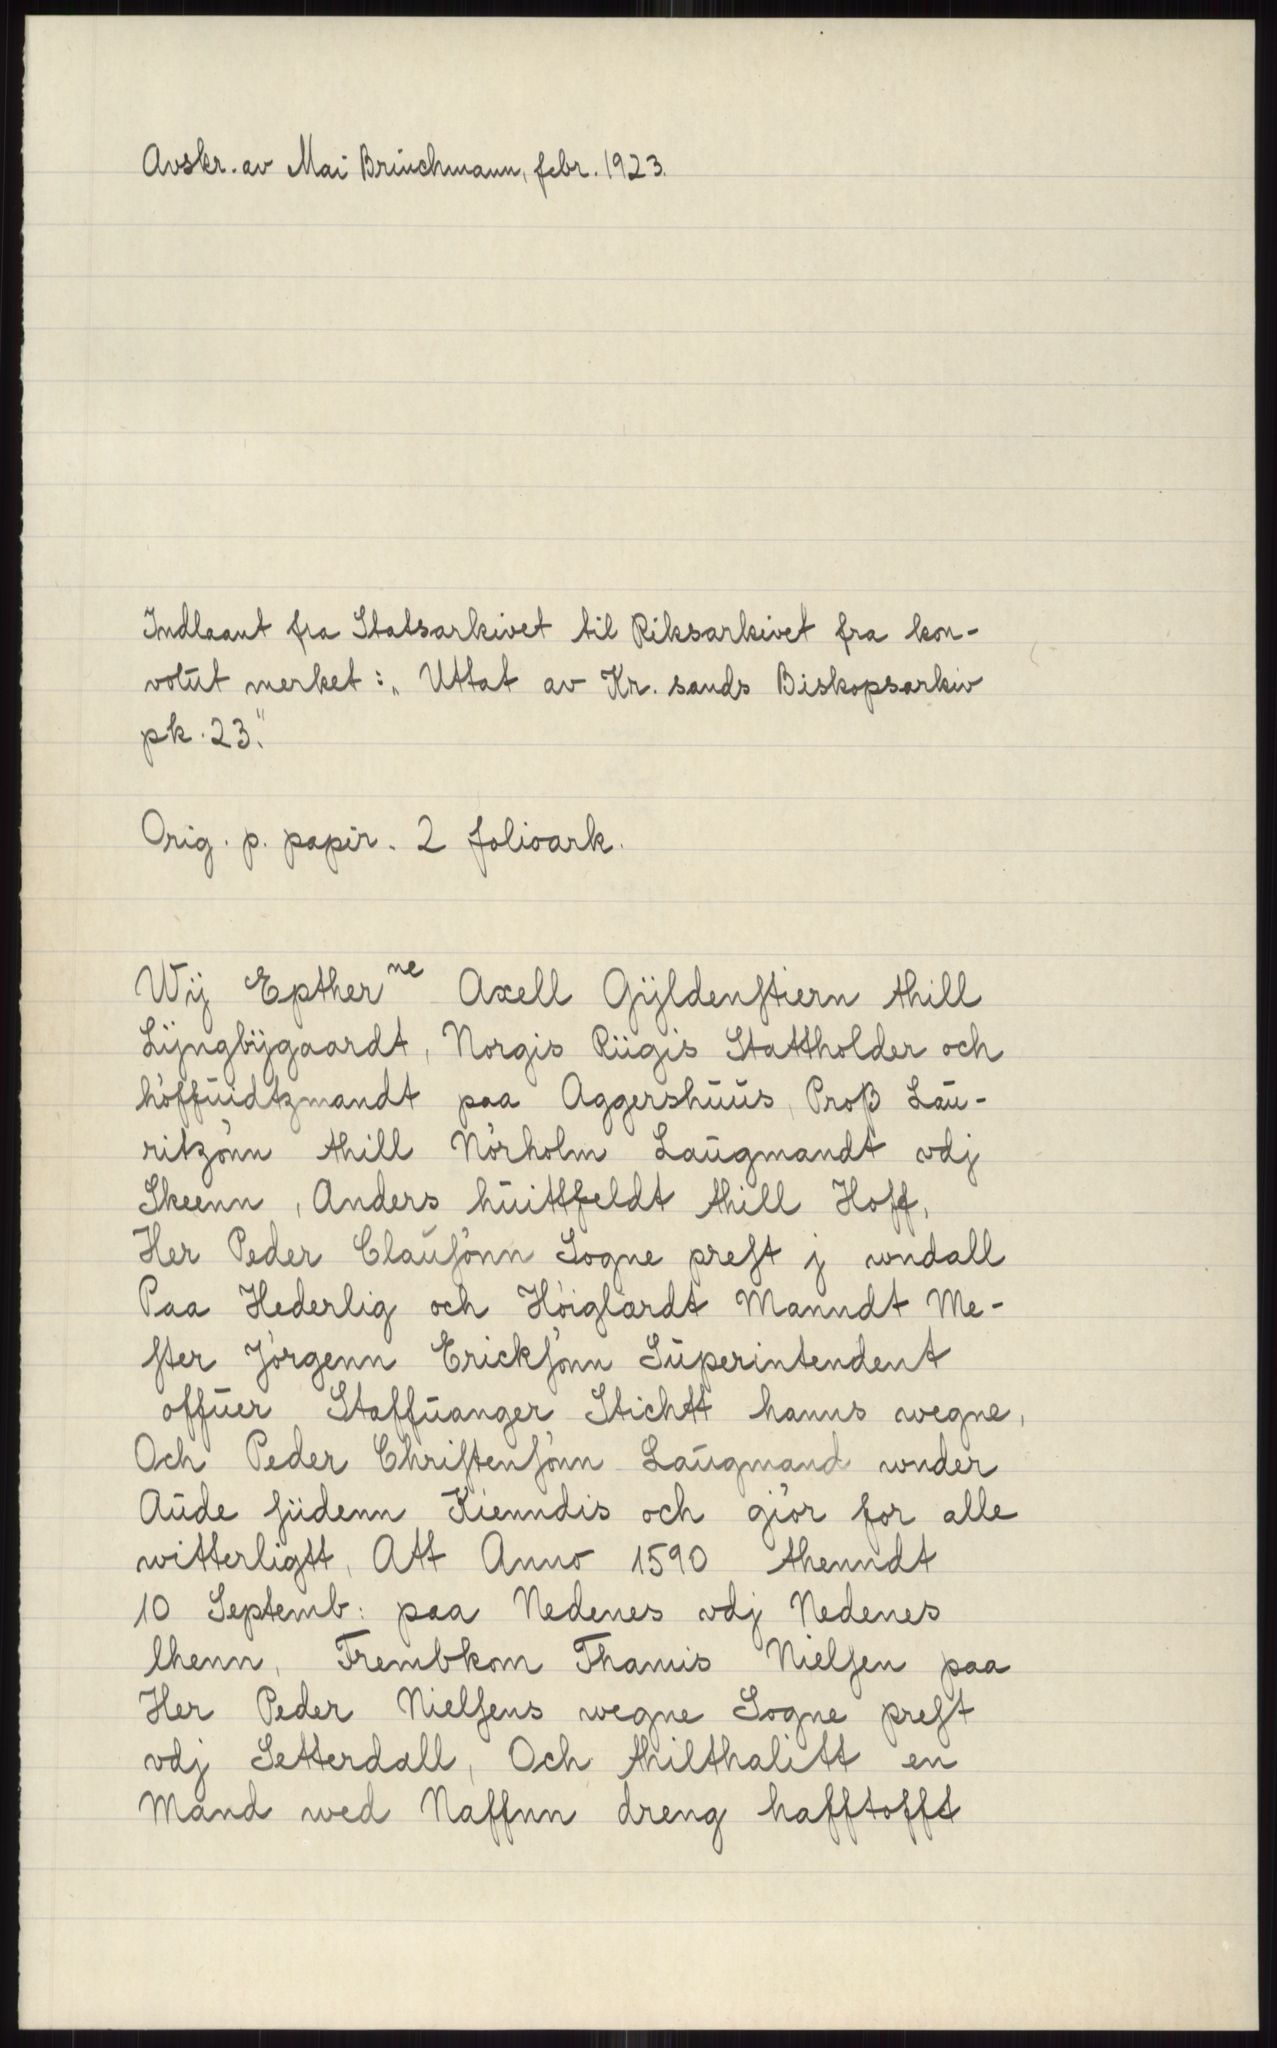 Avskr. av Mai Brinchmann, febr. 1923.
Indlaant fra Statsarkivet til Riksarkivet fra kon-
volut merket: „Uttat av Kr. sands Biskopsarkiv
pk. 23."
Orig. p. papir. 2 folioark.
Wij Epther ne Axell Gÿldenstiern thill
Lÿngbÿgaardt, Norgis Riigis Stattholder och
höffuidtzmandt paa Aggershuus, Proß Lau-
ritzönn thill Nörholm Laugmandt vdj
Skeenn, Anders huittfeldt thill Hoff,
Her Peder Clausönn Sogne prest j vndall
Paa Hederlig och Höiglærdt Manndt Me-
ster Jörgenn Ericksönn Superintendent
offuer Staffuanger Stichtt hanns wegne,
Och Peder Christensönn Laugmand vnder
Aude siidenn Kienndis och giör for alle
witterligtt, Att Anno 1590 thenndt
10 Septemb: paa Nedenes vdj Nedenes
lhenn, Frembkom Thamis Nielsen paa
Her Peder Nielsens wegne Sogne prest
vdj Setterdall, Och thilthalitt en
Mand wed Naffnn dreng hafftofft